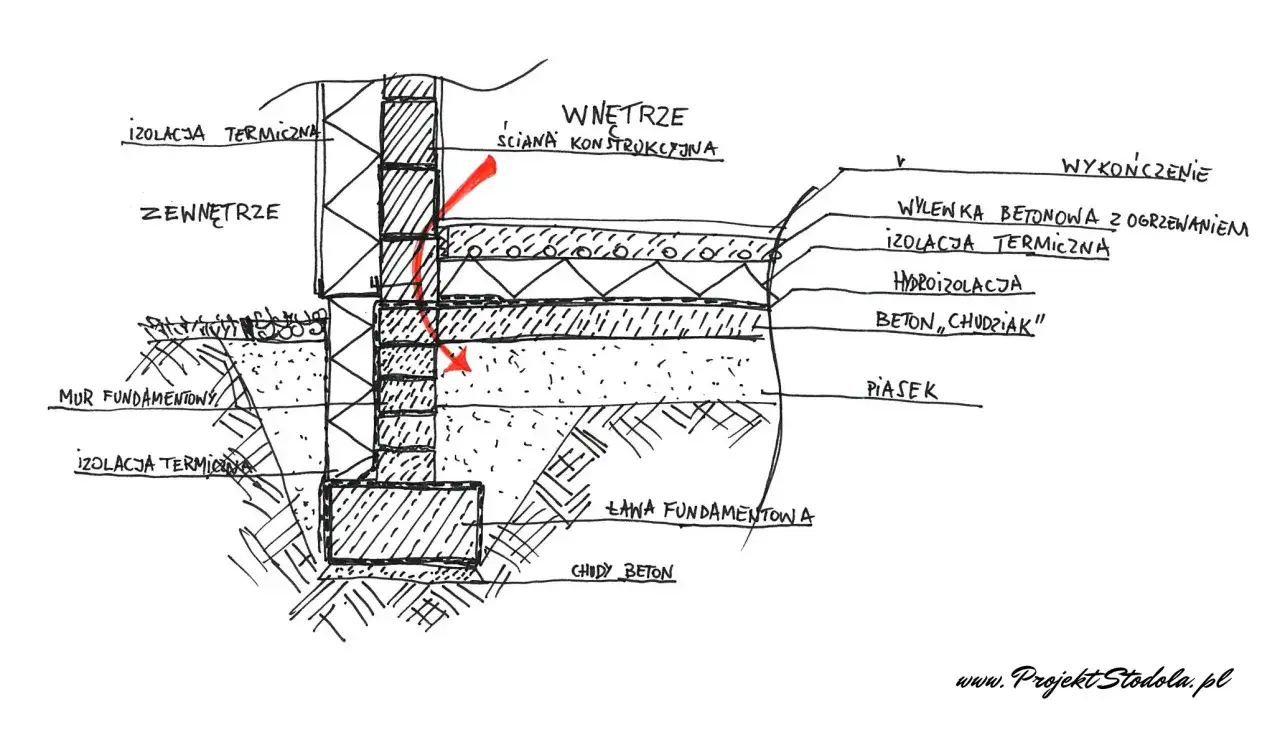 WNĘTRZE
IZOLACJA TERMICZNA
ŚCIANA KONSTRUKCYJNA
WYKOŃCZENIE
ZEWNĘTRZE
WYLEWKA BETONOWA Z OGRZEWANIEM
IZOLACJA TERMICZNA
HYDROIZOLACJA
BETON „CHUDZIAK"
MUR FUNDAMENTOWY
PIASEK
IZOLACJA TERMICZNA
ŁAWA FUNDAMENTOWA
CHUDY BETON
www.ProjektStodola.pl